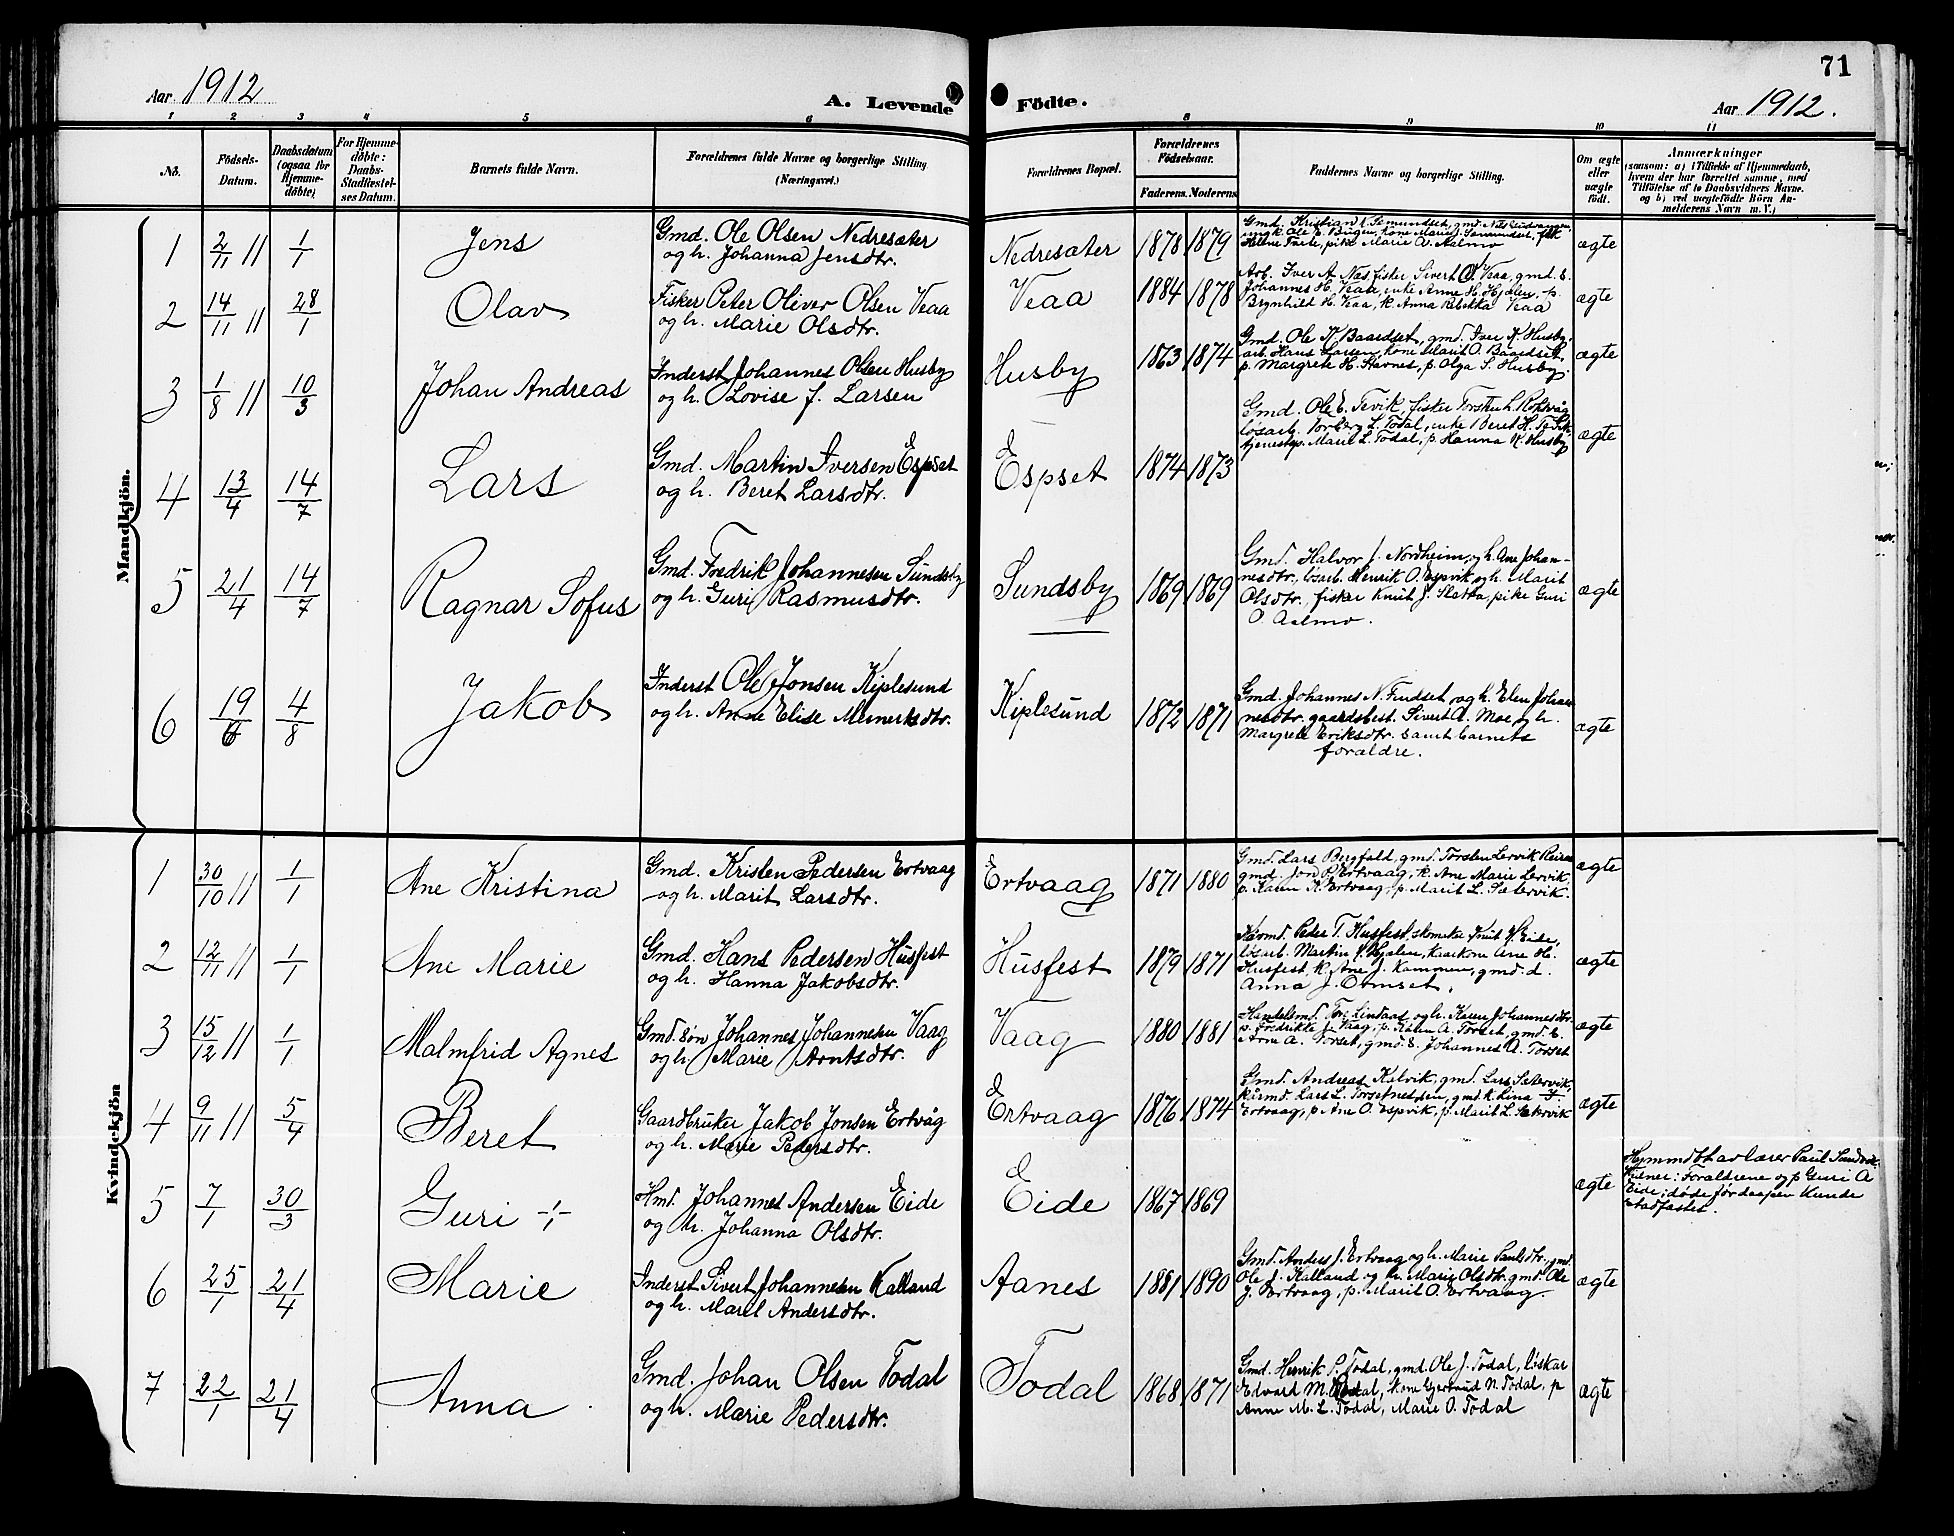 71
Aar 1912
A. Levende Födte.
Aar 1912.
1 2 3 4 5 6 8 9 10 11
No.
Födsels-Datum.
Daabsdatum (ogsaa for Hjemme-döbte).
For Hjemme-döbte: Daabs-Stadfæstel-ses Datum.
Barnets fulde Navn.
Forældrenes fulde Navne og borgerlige Stilling (Næringsvei.)
Forældrenes Bopæl.
Forældrenes Födselsaar.
Faderens. Moderens.
Faddernes Navne og borgerlige Stilling.
Om ægte eller uægte födt.
Anmærkninger
(saasom: a) i Tilfælde af Hjemmedaab, hvem der har forrettet samme, med Tilföielse af to Daabsvidners Navne. og b) ved uægtefödte Börn An-melderens Navn m. V.)
Mandkjön.
1 2/11 11 1/1 Jens Gmd. Ole Olsen Nedresæter og h. Johanna Jensdtr. Nedresæter 1878 1879 ægte
2 14/11 11 28/1 Olav Fisker Peter Oliver Olsen Veaa og h. Marie Olsdtr. Veaa 1884 1878 Arb. Iver A. Næs, fisker Sivert O. Veaa, gmd. s. Johannes H. Veaa, enke Anne H. Hjelen, p. Brynhild H. Veaa, k. Anna Rebekka Veaa ægte
3 1/8 11 10/3 Johan Andreas Inderst Johannes Olsen Husby og h. Lovise J. Larsen Husby 1863 1874 Gmd. Ole K. Baardset, gmd. Iver K. Husby, arb. Hans Larsen, kone Marit O. Baardset, p. Margrete H. Stavnes, p. Olga S. Husby. ægte
4 13/4 14/7 Lars Gmd. Martin Iversen Espset og h. Beret Larsdtr. Espset 1874 1873 Gmd. Ole E. Tevik, fisker Torsten L. Roksvåg løsarb. Torberg L. Todal, enke Beret H. tjenestep. Marie L. Todal, p. Hanna K. Husby ægte
5 21/4 14/7 Ragnar Sofus Gmd. Fredrik Johannesen Sundsby og h. Guri Rasmusdtr. Sundsby 1869 1869 Gmd. Halvor J. Nordheim og h. Ane Johan-nesdtr., løsarb. Henrik O. Espvik og h. Marit Olsdtr., fisker Knut J. Slatta, pike Guri O. Aalmo. ægte
6 19/6 4/8 Jakob Inderst Ole Jonsen Kiplesund og h. Anne Elise Meinerksdtr. Kiplesund 1872 1871 Gmd. Johannes N. Fudset og h. Elen Johan-nesdtr. gaardsbest. Sivert A. Moe og h. Margrete Eriksdtr. samt barnets forældre. ægte
Kvindekjön
1 30/10 11 1/1 Ane Kristina Gmd. Kristen Pedersen Ertvaag og h. Marit Larsdtr. Ertvaag 1871 1880 Gmd. Lars Bergfald, gmd. Torsten Lervik gmd. Jon P. Ertvaag, k. Ane Marie Lervik p. Karen K. Ertvaag, p. Marit L. Sætervik. ægte
2 12/11 11 1/1 Ane Marie Gmd. Hans Pedersen Husfest og h. Hanna Jakobsdtr. Husfest 1879 1871 Peder T. Husfest, skomaker Knut Eide, løsarb. Martin J. Hjelen, kaarkone Ane H. Husfest, k. Ane J. Kammen, gmd. d. Anna J. Omset. ægte
3 15/12 11 1/1 Malmfrid Agnes Gmd. søn Johannes Johannesen Vaag og h. Marie Arntsdtr. Vaag 1880 1881 Handelsmd. Tore Lindaas og h. Karen Johannesdtr. p. Fredrikke J. Vaag, p. Karen A. Torset, gmd. s. Arne A. Torset, gmd. s. Johannes A. Torset ægte
4 9/11 11 5/4 Beret Gaardbruker Jakob Jonsen Ertvåg og h. Marie Pedersdtr. Ertvaag 1876 1874 Gmd. Andreas Kalvik, gmd. Lars Sætervik, kårmd. Lars L. Torsetnes gmd. k. Lina J. Ertvaag, p. Ane O. Espvik, p. Marit L. Sætervik ægte
5 7/1 30/3 Guri ÷ Hmd. Johannes Andersen Eide og h. Johanna Olsdtr. Eide 1867 1869 ægte Hjemmdbt. av lærer Paul Vidner: Forældrene og p. Guri A Eide; døde før daapen kunde stadfæstes.
6 25/1 21/4 Marie Inderst Sivert Johannesen Kalland og h. Marit Andersdtr. Aanes 1881 1890 Gmd. Anders J. Ertvaag og h. Marie Paulsdtr., gmd. Ole J. Kalland og h. Marie Olsdtr. gmd. Ole J. Ertvaag, p. Marit O. Ertvaag. ægte
7 22/1 21/4 Anna Gmd. Johan Olsen Todal og h. Marie Pedersdtr. Todal 1868 1871 Gmd. Henrik P. Todal, gmd. Ole J. Todal, løskar Edvard M. Todal, kone Gjertrud N. Todal, p Anne M. L. Todal, Marie O. Todal ægte